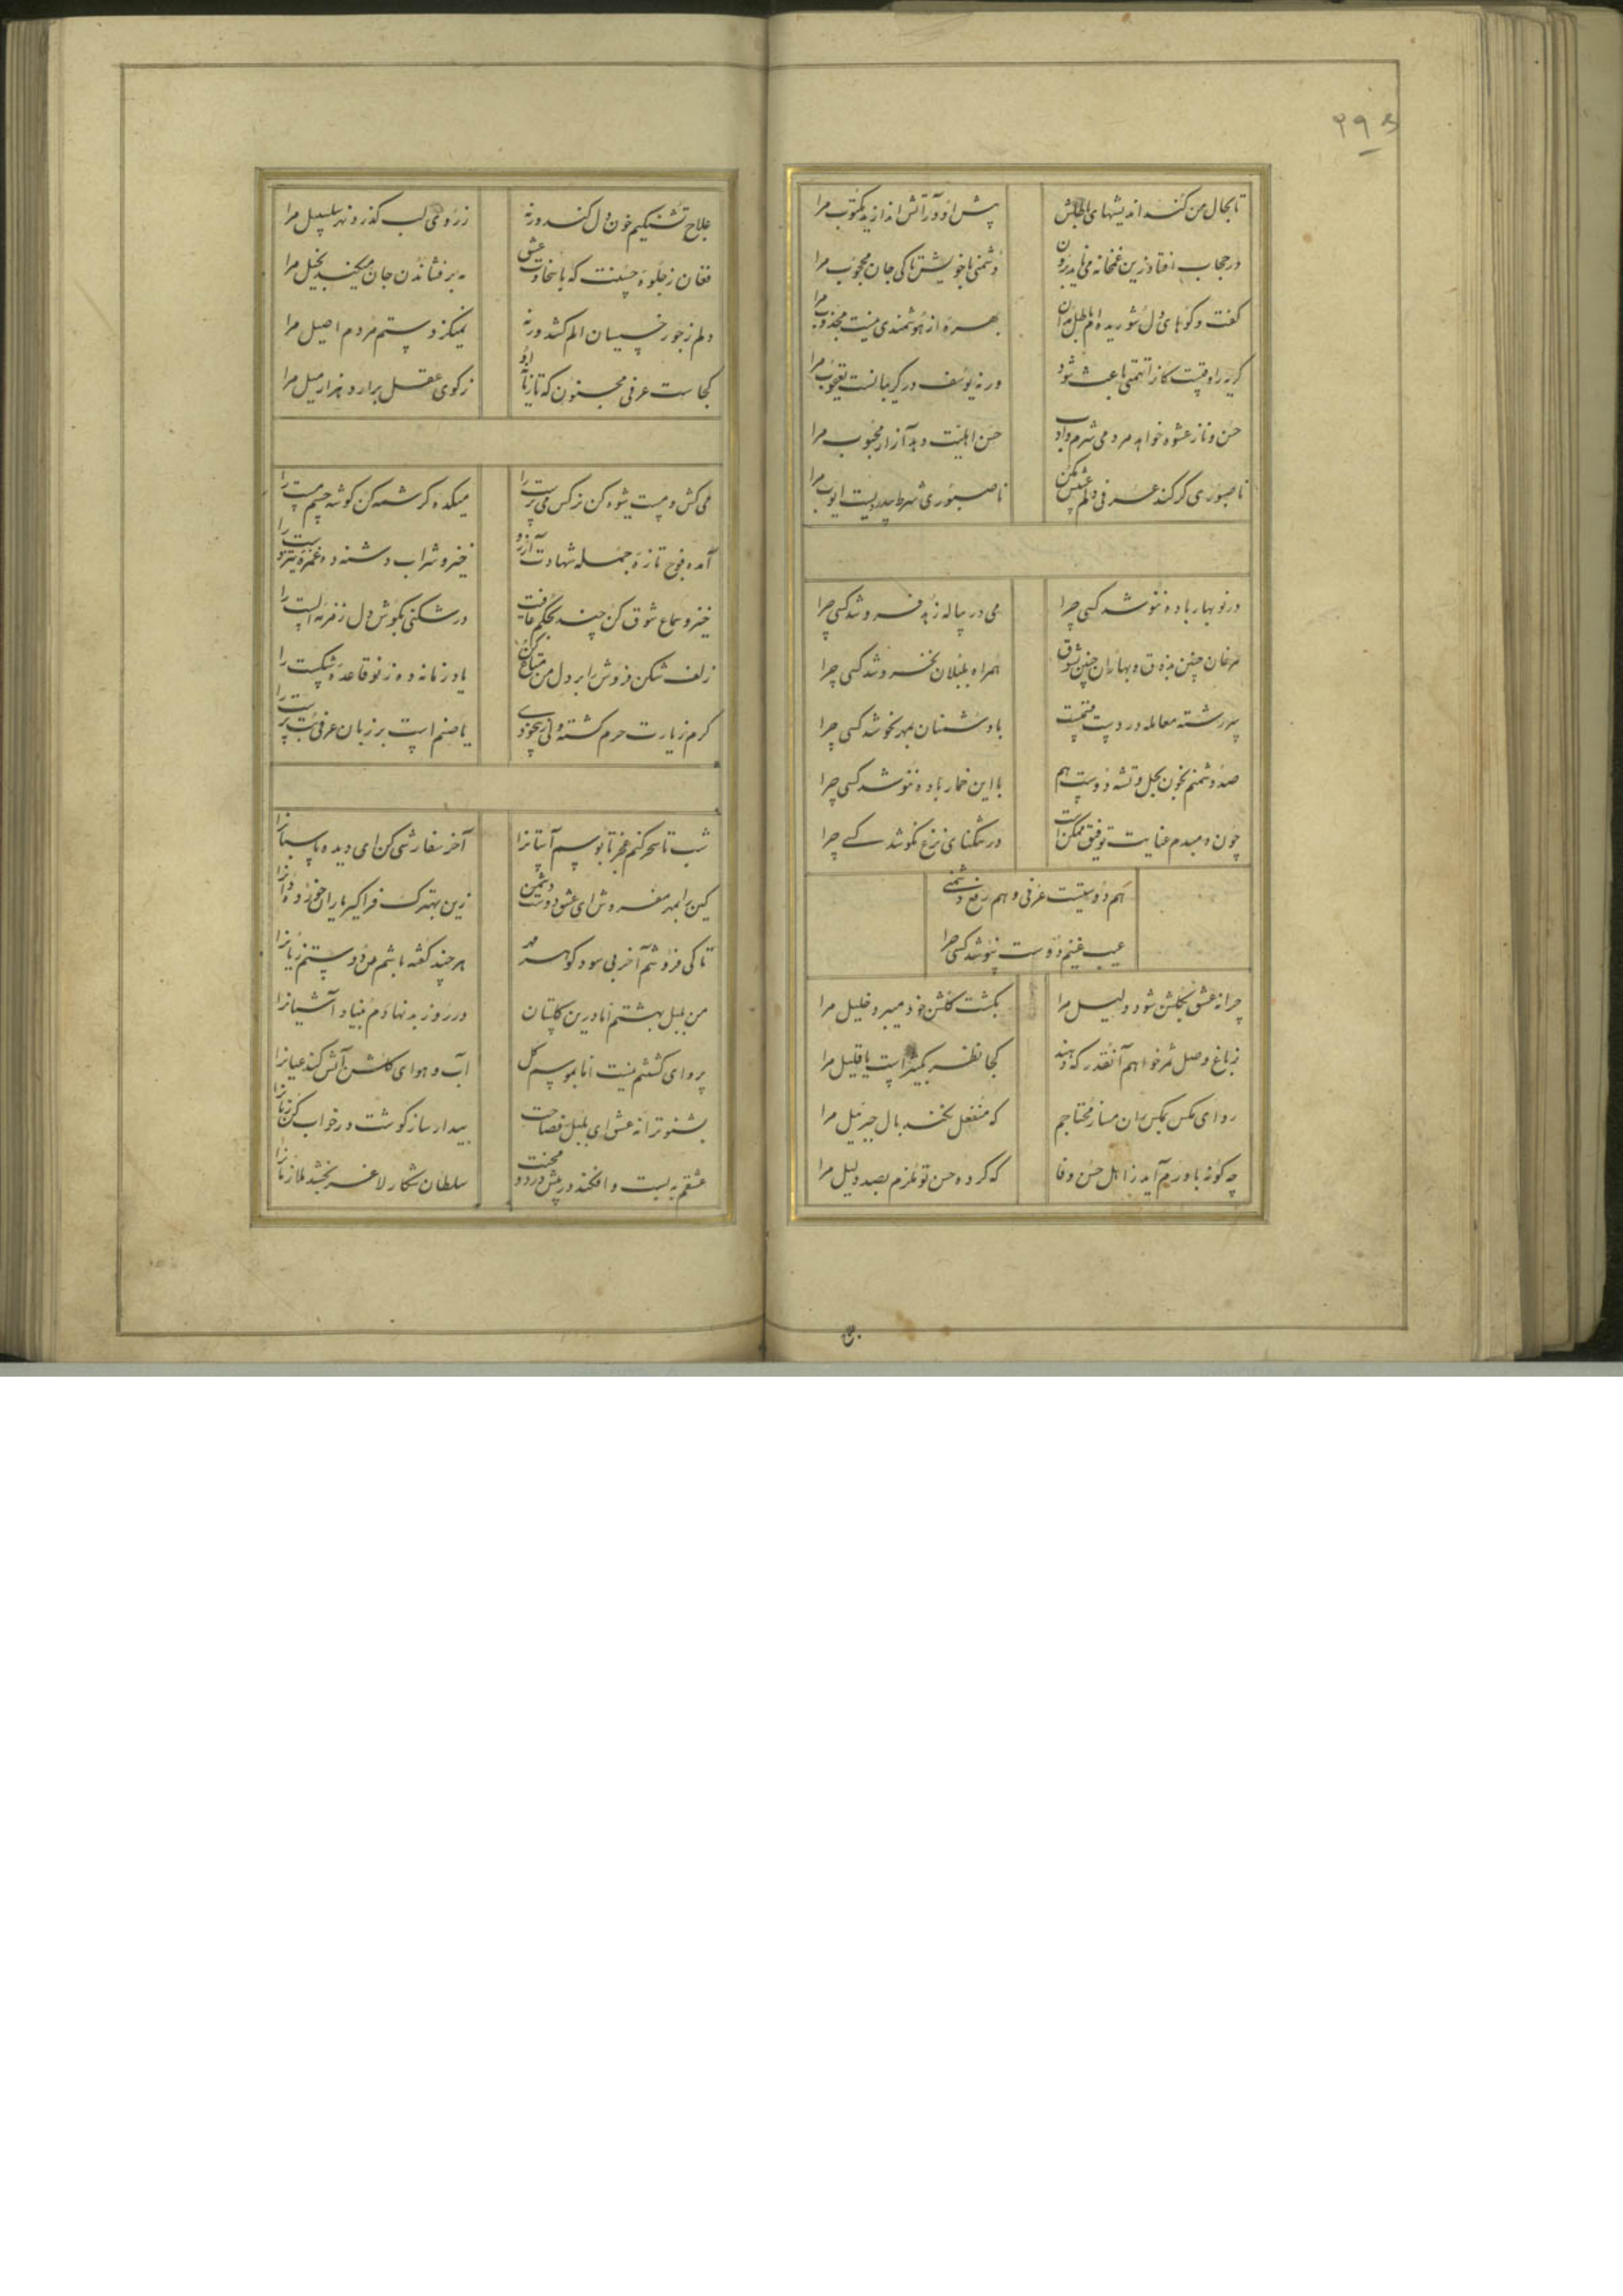 تا بحال من کند اندیشهای باطلش
پیش او در آتش اندازید مکتوب مرا
در حجاب افتاد زین غمخانه می‌باید برون
دشمنی با خویش تا کی جان محجوب مرا
گفت و گوهای دل شوریده ام باطل مدان
بهره از هوشمندی نیست مجذوب مرا
گریه را وقتیست کانرا تهمتی باعث شود
ورنه یوسف در گریبانست یعقوب مرا
حسن و ناز عشوه خواهد مردمی شرم و ادب
حسن اهلیت دهد آزار محبوب مرا
ناصبوری گر کند عرفی دلم عیبش مکن
ناصبوری شرط بیدردیست ایوب مرا
در نوبهار باده ننوشد کسی چرا
می در پیاله زهد فروشد کسی چرا
مرغان چنین بذوق و بهاران چنین بشوق
همراه بلبلان نخروشد کسی چرا
سررشته معامله در دست قسمتست
با دشمنان بمهر نجوشد کسی چرا
صد دشمنم بخون بحل و تشنه دوست هم
با این خمار باده ننوشد کسی چرا
چون دمبدم عنایت توفیق ممکن است
در تنگنای نزع نکوشد کسے چرا
هم دوستیست عرفی و هم رفع دشمنے
عیب غنیم دوست نپوشد کسی چرا
چرا نه عشق بگلشن شود دلیل مرا
بگشت گلشن خود میبرد خلیل مرا
ز باغ وصل ثمر خواهم آنقدر که دهند
کجا نظر بکثیر است یا قلیل مرا
رو ای مگس بمگس ران مساز محتاجم
که منفعل نکند بال جبرئیل مرا
چه گونه باورم آید ز اهل حسن وفا
که کرده حسن تو ملزم بصد دلیل مرا
علاج تشنگیم خون دل کند ورنه
ز روی لب گذرد نهر سلسبیل مرا
فغان ز جلوه حسنت که با سخاوت عشق
به برفشاندن جان میکند بخیل مرا
دلم ز جور خسیسان الم کشد ورنه
نمیگزد ستم مردم اصیل مرا
کجاست عرفی مجنون که تازیانه او
ز کوی عقل برارد هزار میل مرا
می کش و مست شیوه کن نرگس می پرست را
میکده کرشمه کن گوشه چشم مست را
آمده فوج تازه جمله شهادت آرزو
خیز و شراب دشنه ده غمزه تیز دست را
خیز و سماع شوق کن چند بحکم عافیت
در شکنی بگوش دل زمزمه الست را
زلف شکن فروش را بر دل من متاع کن
یاد زمانه ده ز نو قاعده شکست را
گرم زیارت حرم گشته ولی ز بیخودی
یا صنم است بر زبان عرفی بت پرست را
شب تا سحر کنم عجز تا بوسم آستانرا
آخر سفارشی کن ای دیده پاسبانرا
کین را بمهر مفروش ای عشق دوست دشمن
زین بهترک فراگیر یاران خورده دانرا
تا کی فروشم آخر بی سود گوهر مهر
هر چند گفته باشم من دوستم زیانرا
من بلبل بهشتم اما درین گلستان
در روز بد نهادم بنیاد آشیانرا
پروای کشتنم نیست اما بموسم گل
آب و هوای گلشن آتش کند عیانرا
بشنو ترانه عشق ای بلبل فصاحت
بیدار ساز گوشت در خواب کن زبانرا
عشقم به بست و افکند در پیش درد و محنت
سلطان شکار لاغر بخشد ملازمانرا